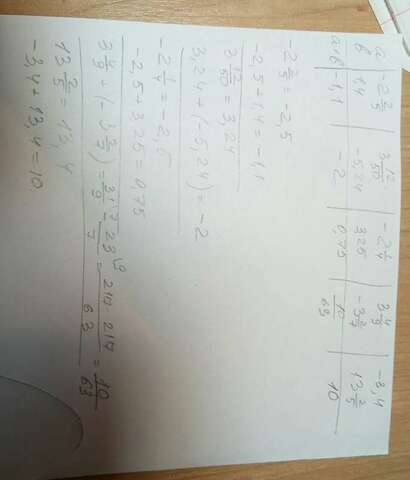 a | -2 2/5 | 3 12/50 | -2 1/4 | 3 4/9 | -3,4
b | 1,4 | -5,24 | 3,25 | -3 2/7 | 13 2/5
a+b | -1,1 | -2 | 0,75 | 10/63 | 10
-2 2/5 = -2,5
-2,5 + 1,4 = -1,1
3 12/50 = 3,24
3,24 + (-5,24) = -2
-2 1/4 = -2,5
-2,5 + 3,25 = 0,75
3 4/9 + (-3 2/7) = 31/9 - 23/7 = 217-217/63 = 10/63
13 2/5 = 13,4
-3,4 + 13,4 = 10